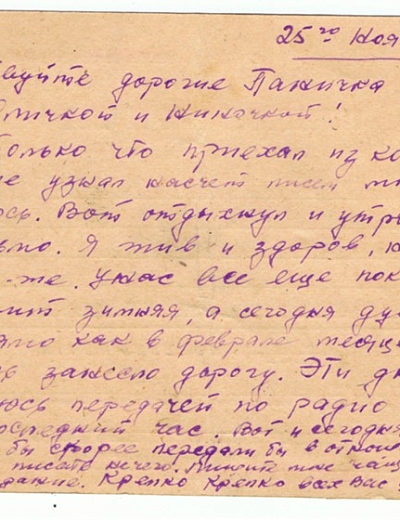 25го ноя
вуйте дорогие Паничка
личкой и Ниночкой!
Только что приехал из ко
не узнал насчет писем
ось. Вот отдыхнул и утр
ьмо. Я жив и здоров,
-же. у нас все еще пок
зимняя, а сегодня ду
ямо как в феврале месяц
занесло дорогу. Эти д
юсь передачей по радио
оследний час. Вот и сегодня
бы скорее передали бы в
писать нечего. Пишите мне чащ
дание. Крепко Крепко всех Вас